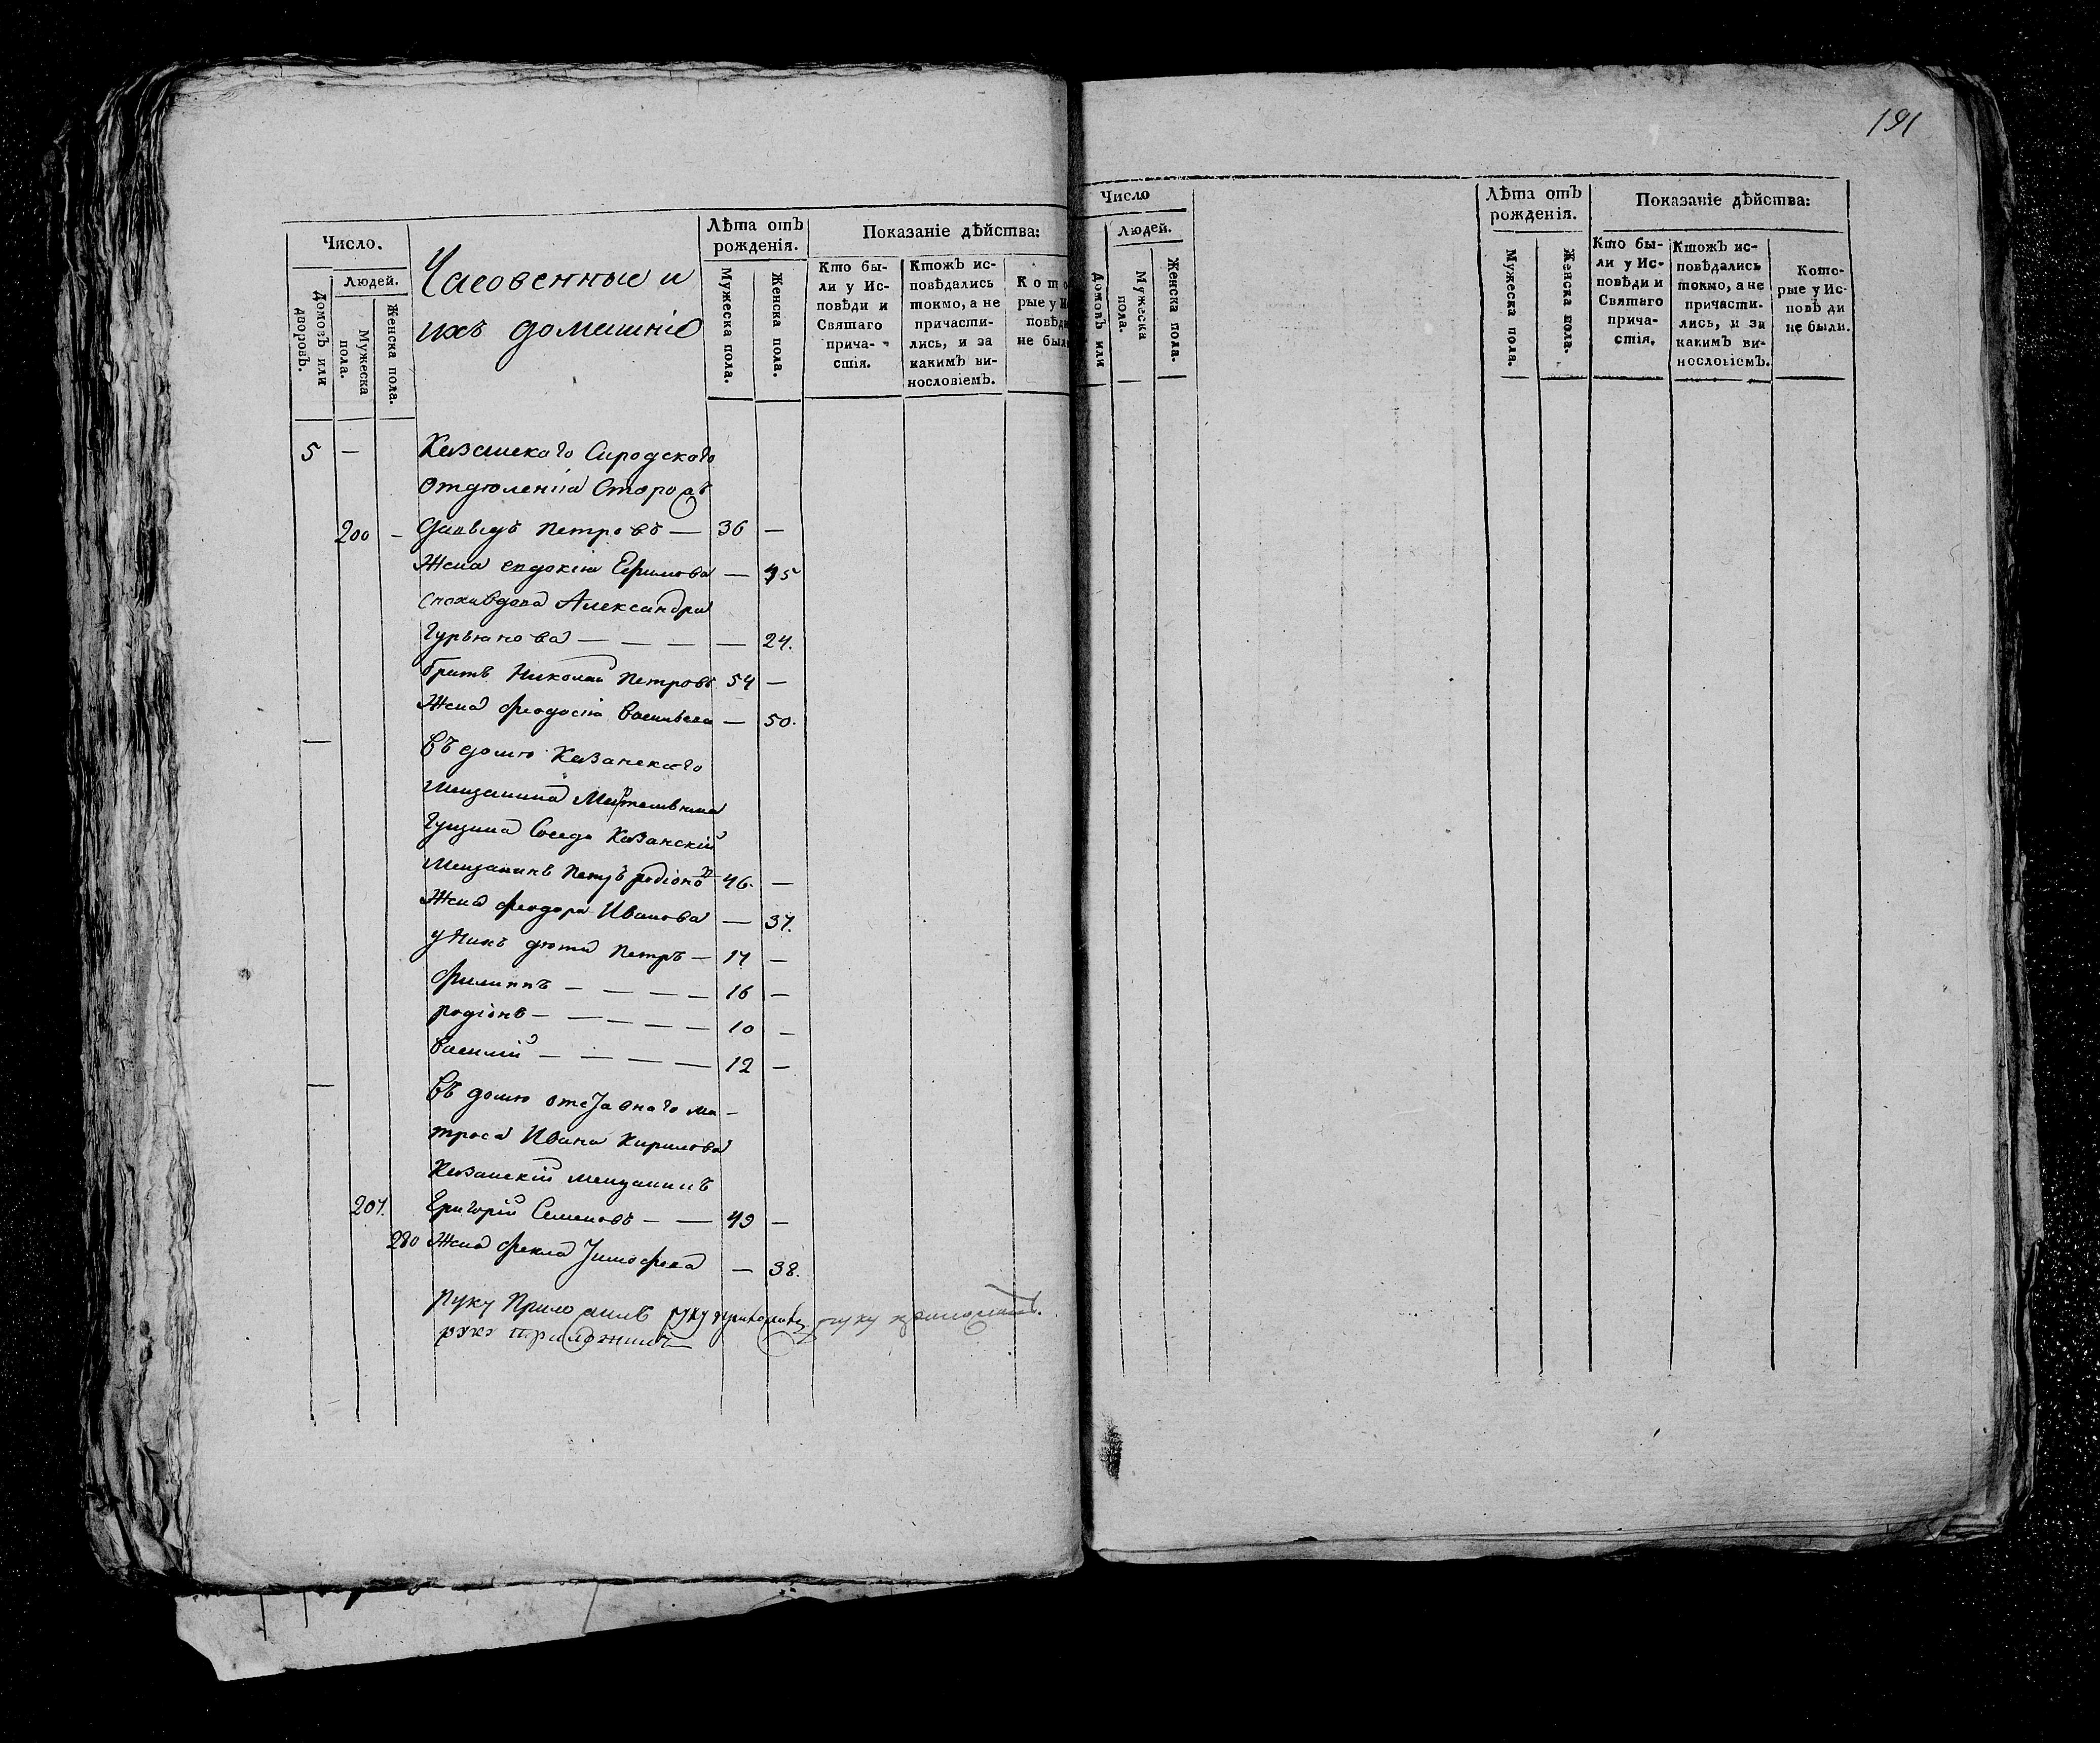 191
Число.
Людей.
Домовъ или дворовъ.
Мужеска пола.
Женска пола.
Часовенные и
ихъ домашніе
Лѣта отъ рожденія.
Мужеска пола.
Женска пола.
Показаніе дѣйства:
Кто бы-
ли у Ис-
повѣди и
Святаго
прича-
стія.
Ктожъ ис-
повѣдались
токмо, а не
причасти-
лись, и за
какимъ ви-
нословіемъ.
Кото
рые у И
повѣд
не был
5 —
Казанскаго Городскаго
отдѣленія
200 — Давыдъ Петровъ — 36 —
Жена евдокія Ефимова — 45
Александра
Гурьянова — — — — 24.
братъ Николай Петровъ 54 —
Жена феодосія васильева — 50.
— въ домѣ Казанскаго
Мещанина
Гущина Соседъ Казанскій
Мещанинъ Петръ родіоновъ 46. —
Жена феодора Иванова — 37.
у нихъ дѣти Петръ — 17 —
филиппъ — — — — 16 —
родіонъ — — — — — 10 —
василій — — — — — 12 —
— въ домѣ отставнаго ма-
троса Ивана Кирилова
Казанскій мещанинъ
207. Григорій Семеновъ — — 49 —
280 Жена фекла Тимофеева — 38.
руку Приложилъ руку приложилъ руку приложилъ.
руку приложилъ
Число
Людей.
Домовъ или
Мужеска пола.
Женска пола.
Лѣта отъ рожденія.
Мужеска пола.
Женска пола.
Показаніе дѣйства:
Кто бы-
ли у Ис-
повѣди и
Святаго
прича-
стія.
Ктожъ ис-
повѣдались
токмо, а не
причасти-
лись, и за
какимъ ви-
нословіемъ.
Кото-
рые у Ис-
повѣ ди
не были.